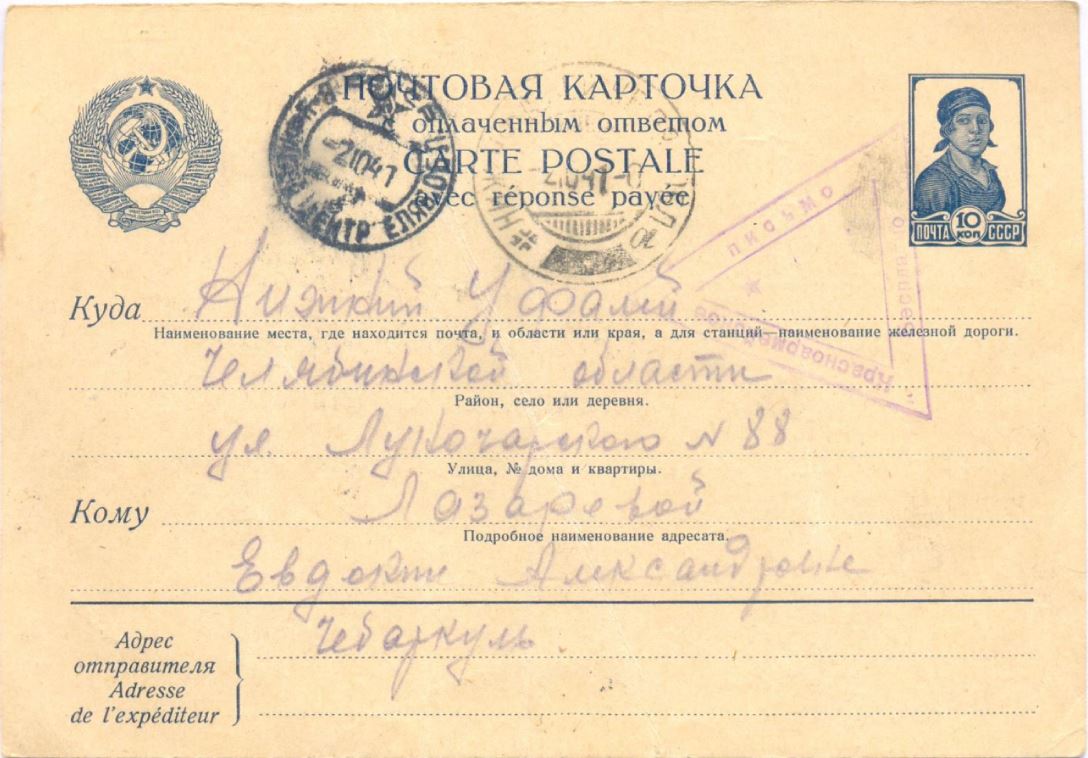 ПОЧТОВАЯ КАРТОЧКА
с оплаченным ответом
CARTE POSTALE
avec réponse payée
10 КОП
ПОЧТА СССР
-21041
21041-
ЦЕНТР
письмо
Красноармейское
бесплатно
Куда Нижний Уфалей
Наименование места, где находится почта, и области или края, а для станций—наименование железной дороги.
Челябинской области
Район, село или деревня.
ул. Луночарского N 88
Улица, № дома и квартиры.
Кому Лазаревой
Подробное наименование адресата.
Евдокии Александровне
Чебаркуль
Адрес
отправителя
Adresse
de l'expéditeur